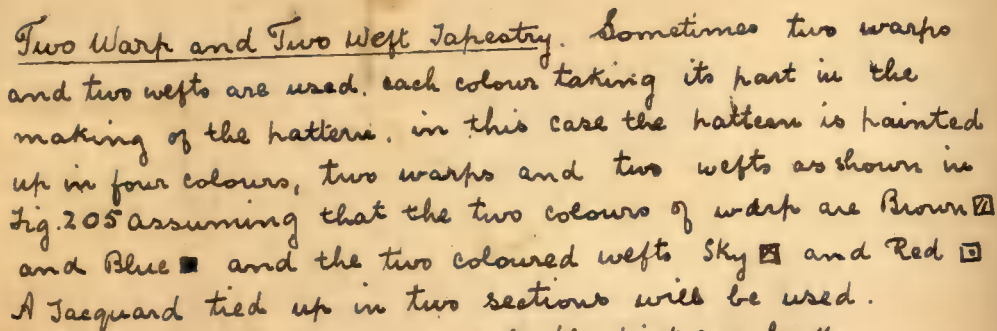 Two Warp and Two Weft Tapestry. Sometimes two warps
and two wefts are used. each colour taking its part in the
making of the pattern. in this case the pattern is painted
up in four colours, two warps and two wefts as shown in
Fig. 205 assuming that the two colours of warp are Brown
and Blue and the two coloured wefts Sky and Red
A Jacquard tied up in two sections will be used.